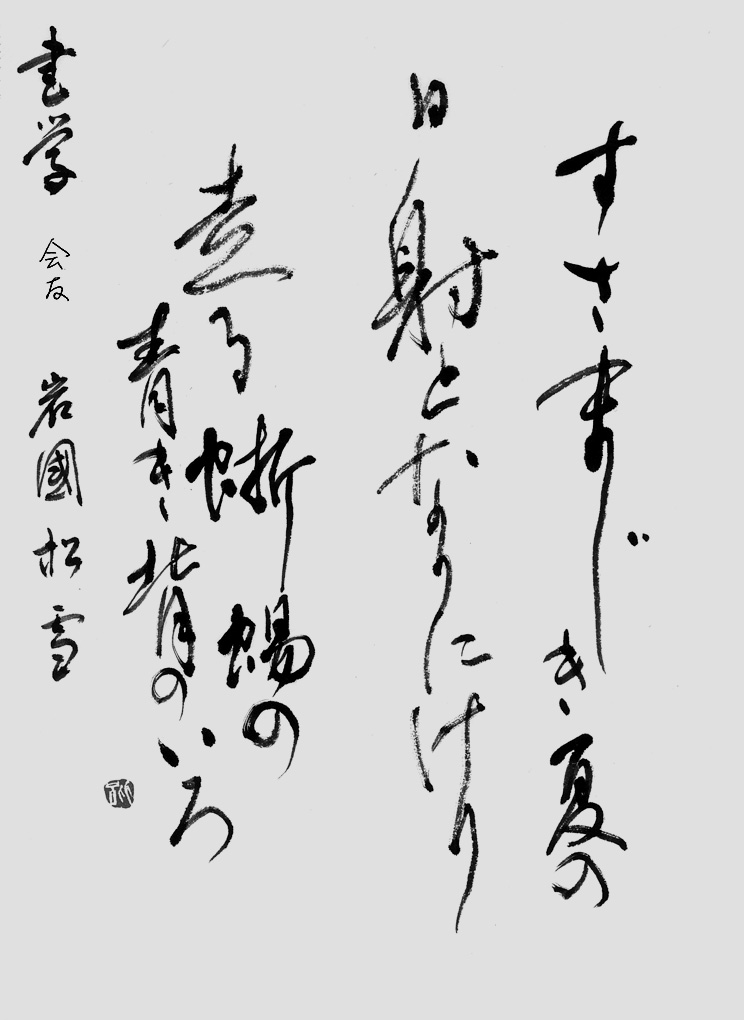 すさまじき夏の
日射となりにけり
走る蜥蜴の
青き背のいろ
書学 会友 岩國松雪